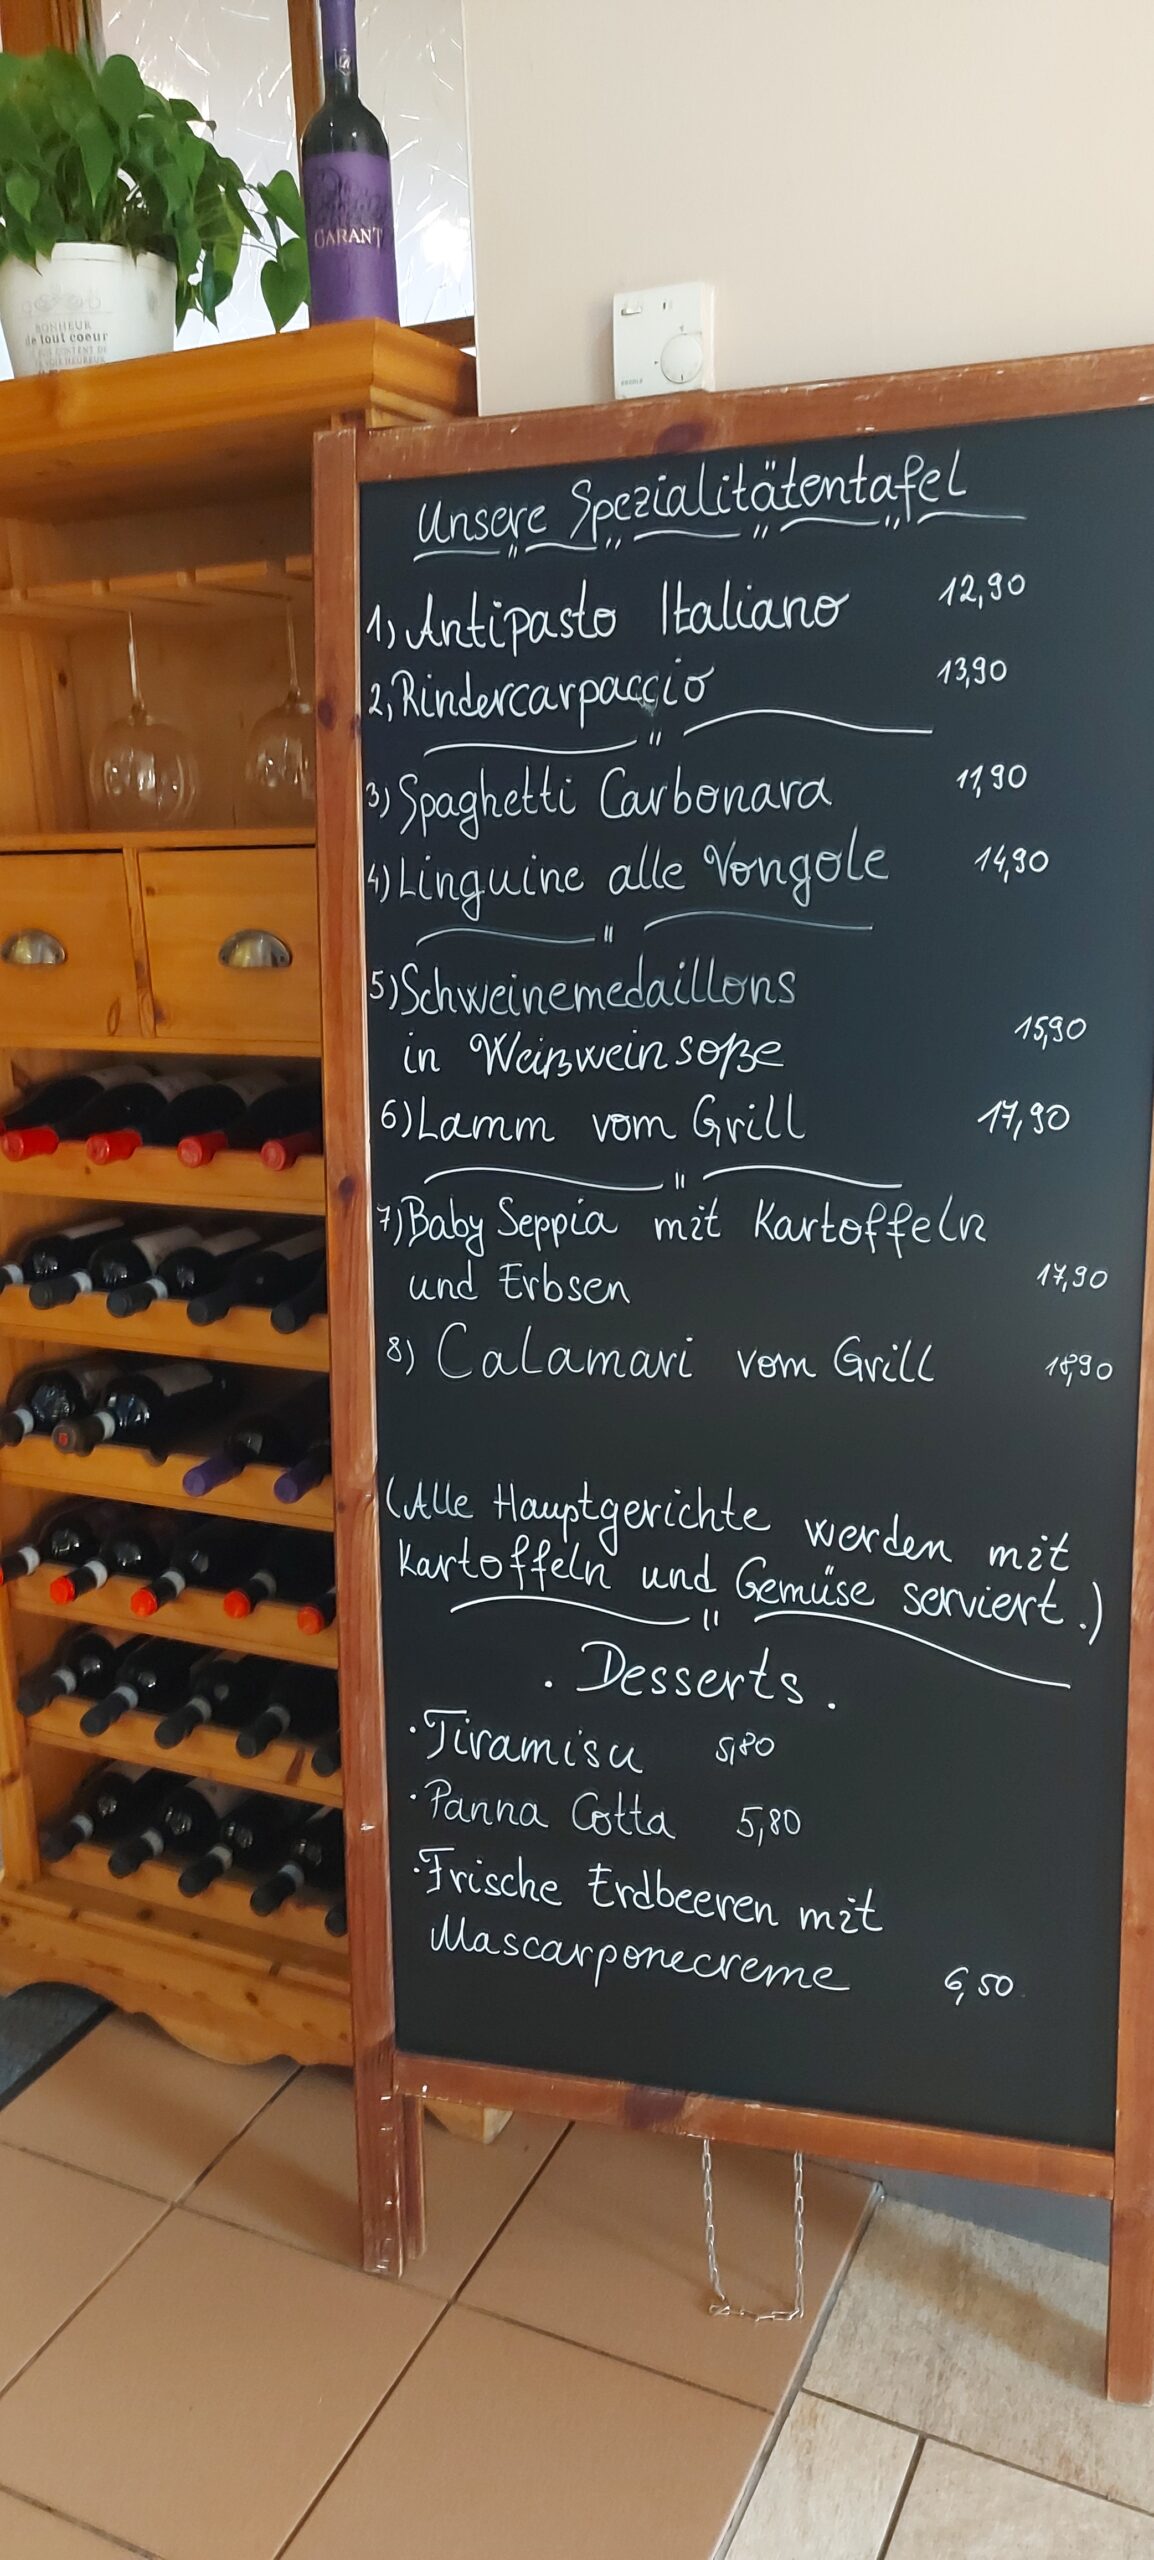 GARANT
BONHEUR
de tout coeur
Unsere Spezialitätentafel
1) Antipasto Italiano 12,90
2, Rindercarpaccio 13,90
3) Spaghetti Carbonara 11,90
4) Linguine alle Vongole 14,90
5) Schweinemedaillons
in Weißweinsoße 15,90
6) Lamm vom Grill 17,90
7) Baby Seppia mit Kartoffeln
und Erbsen 17,90
8) Calamari vom Grill 18,90
(Alle Hauptgerichte werden mit
Kartoffeln und Gemüse serviert.)
. Desserts .
· Tiramisu 5,80
· Panna Cotta 5,80
· Frische Erdbeeren mit
Mascarponecreme 6,50